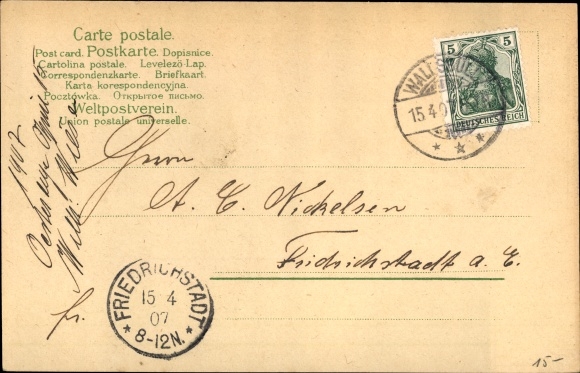 Carte postale.
Post card. Postkarte. Dopisnice.
Cartolina postale. Levelező-Lap.
Correspondenzkarte. Briefkaart.
Karta korespondencyjna.
Pocztówka. Открытое письмо.
Weltpostverein.
Union postale universelle.
5 5
DEUTSCHES REICH
15.4.0
Herrn
A. C. Nickelsen
Fridrichstadt a. E.
fr.
1907
FRIEDRICHSTADT
15 4
07
* 8-12N. *
15-